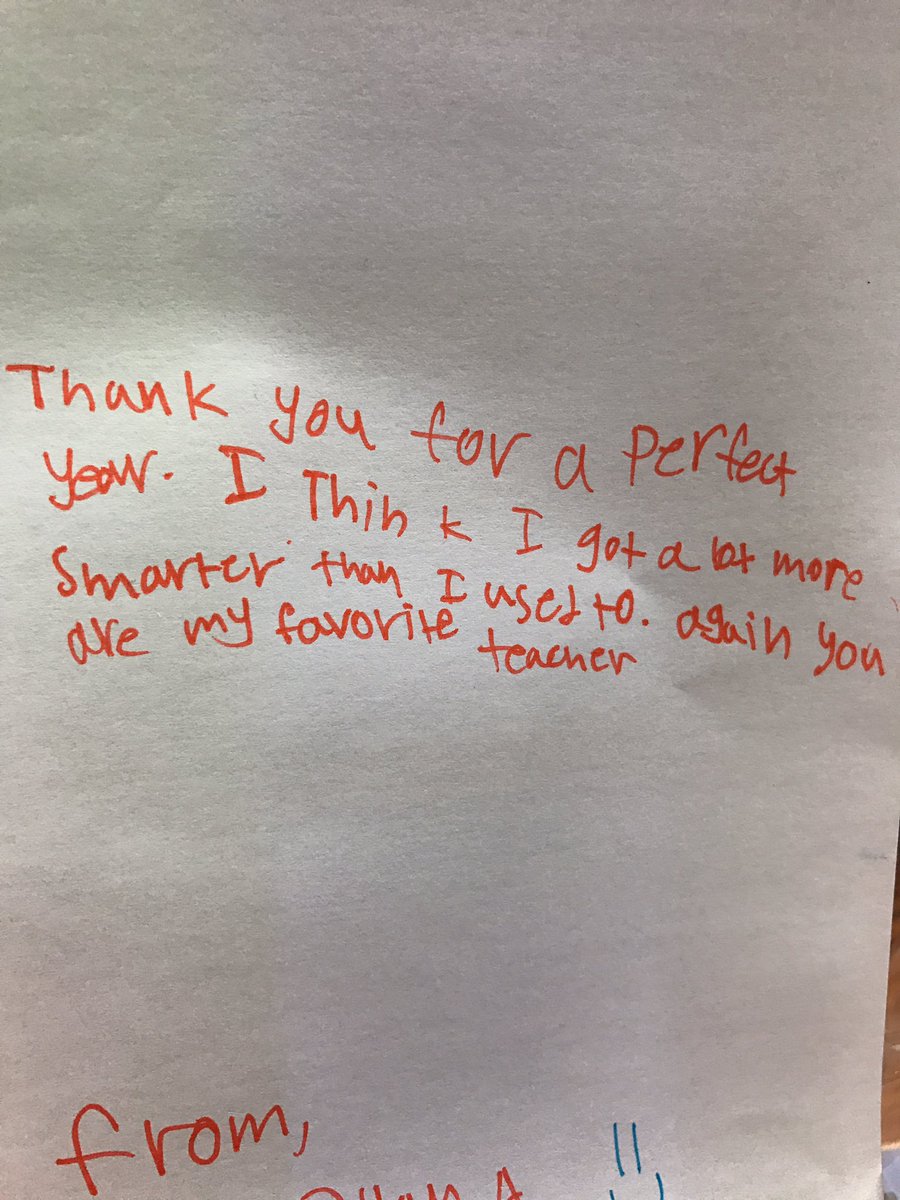 Thank you for a perfect
year. I Think I got a lot more
smarter than I used to. again you
are my favorite teacher
from,